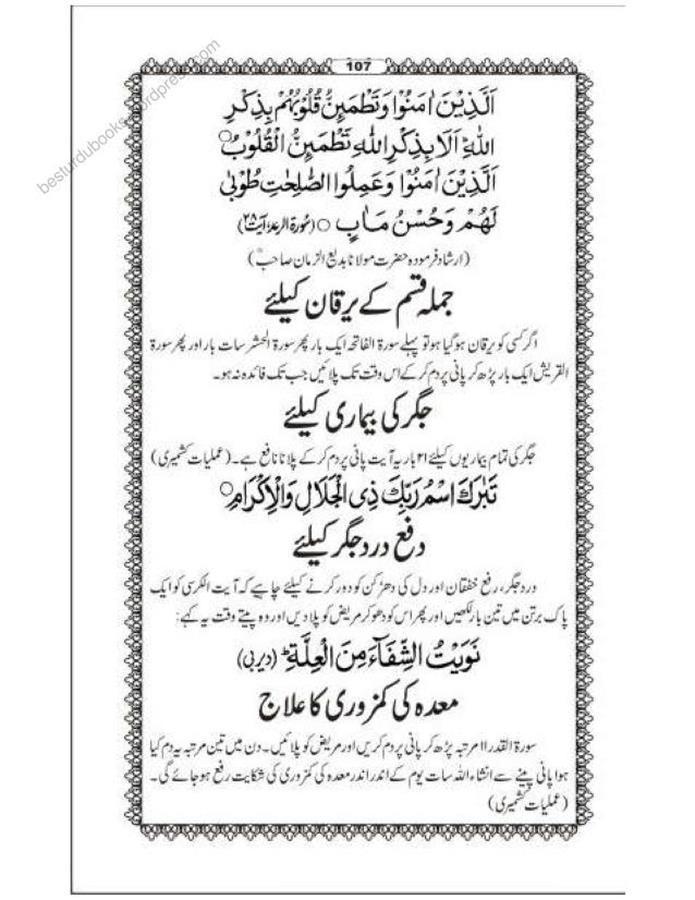 besturdubooks.wordpress.com
107
اَلَّذِيْنَ اٰمَنُوْا وَتَطْمَئِنُّ قُلُوْبُهُمْ بِذِكْرِ
اللّٰهِ ؕ اَلَا بِذِكْرِ اللّٰهِ تَطْمَئِنُّ الْقُلُوْبُ ○
اَلَّذِيْنَ اٰمَنُوْا وَعَمِلُوا الصّٰلِحٰتِ طُوْبٰى
لَهُمْ وَحُسْنُ مَاٰبٍ ○ (سُورۃ الرعد، آیت ۲۸)
(ارشاد فرمودہ حضرت مولانا بدیع الزمان صاحبؒ)
جملہ قسم کے یرقان کیلئے
اگر کسی کو یرقان ہوگیا ہو تو پہلے سورۃ الفاتحہ ایک بار پھر سورۃ الحشر سات بار اور پھر سورۃ
القریش ایک بار پڑھ کر پانی پر دم کر کے اس وقت تک پلائیں جب تک فائدہ نہ ہو۔
جگر کی بیماری کیلئے
جگر کی تمام بیماریوں کیلئے ۲۱ بار یہ آیت پانی پر دم کر کے پلانا نافع ہے۔ (عملیات کشمیری)
تَبٰرَكَ اسْمُ رَبِّكَ ذِى الْجَلَالِ وَالْاِكْرَامِ ○
دفع درد جگر کیلئے
درد جگر، رفع خفقان اور دل کی دھڑکن کو دور کرنے کیلئے چاہیے کہ آیت الکرسی کو ایک
پاک برتن میں تین بار لکھیں اور پھر اس کو دھو کر مریض کو پلا دیں اور وہ پیتے وقت یہ کہے:
نَوَيْتُ الشِّفَآءَ مِنَ الْعِلَّةِ ؕ (دیربی)
معدہ کی کمزوری کا علاج
سورۃ القدر ۱۱ مرتبہ پڑھ کر پانی پر دم کریں اور مریض کو پلائیں۔ دن میں تین مرتبہ یہ دم کیا
ہوا پانی پینے سے انشاء اللہ سات یوم کے اندر اندر معدہ کی کمزوری کی شکایت رفع ہو جائے گی۔
(عملیات کشمیری)